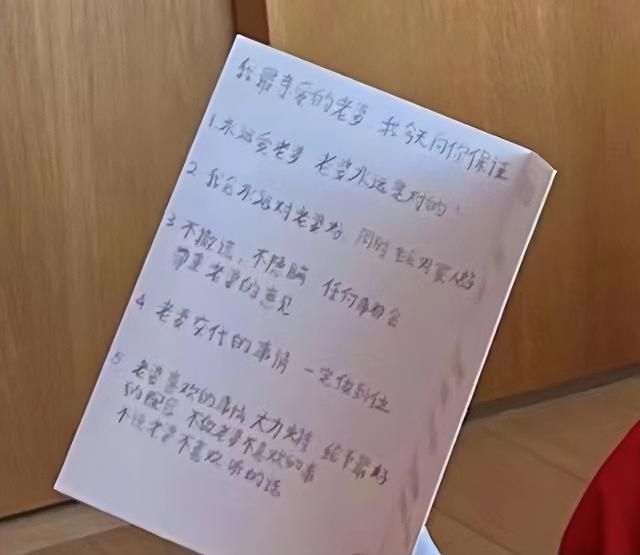 我最亲爱的老婆 我今天向你保证
1 永远爱老婆 老婆永远是对的。
2 我会永远对老婆好, 同时 也会对家人好
3 不撒谎, 不隐瞒 任何事都会
尊重老婆的意见
4 老婆交代的事情 一定做到位
5 老婆喜欢的事情 大力支持 给予最好
的配合 不做老婆不喜欢的事
不说老婆不喜欢听的话